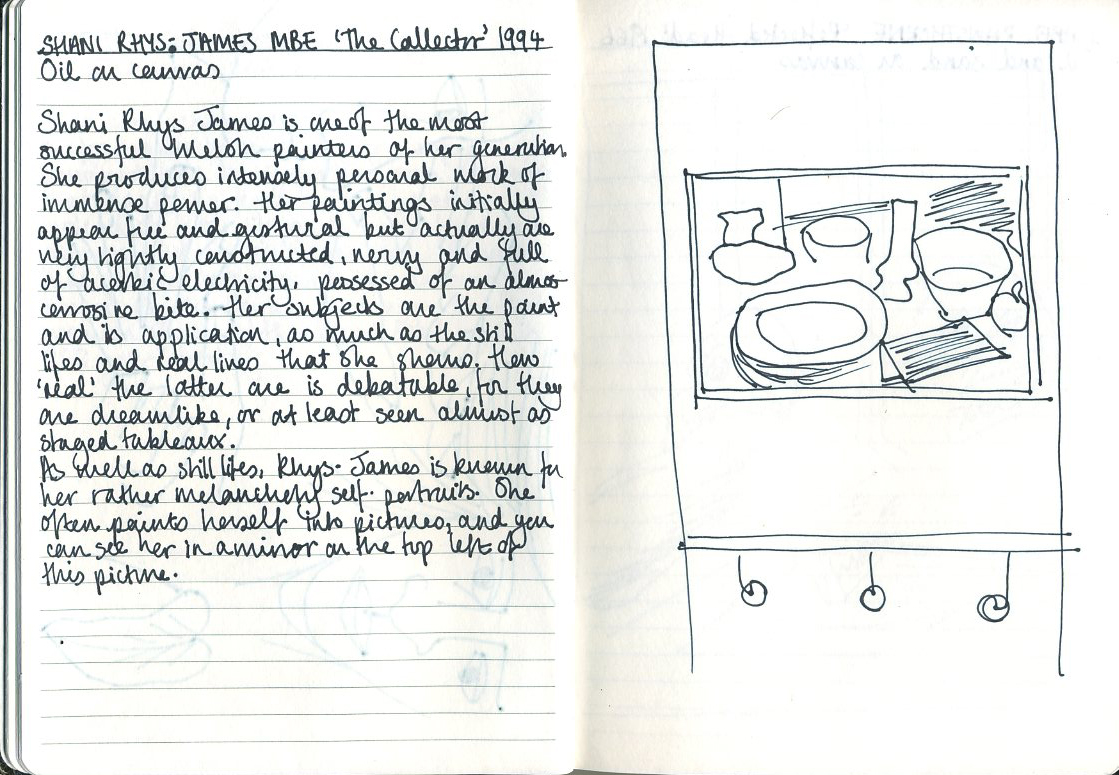 SHANI RHYS-JAMES MBE 'The Collector' 1994
Oil on canvas
Shani Rhys James is one of the most
successful Welsh painters of her generation.
She produces intensely personal work of
immense power. Her paintings initially
appear free and gestural but actually are
very tightly constructed, nervy and full
of acerbic electricity, possessed of an almost
corrosive bite. Her subjects are the paint
and its application, as much as the still
lifes and real lives that she shows. How
'real' the latter are is debatable, for they
are dreamlike, or at least seen almost as
staged tableaux.
As well as still lifes, Rhys-James is known for
her rather melancholy self-portraits. She
often paints herself into pictures, and you
can see her in a mirror on the top left of
this picture.